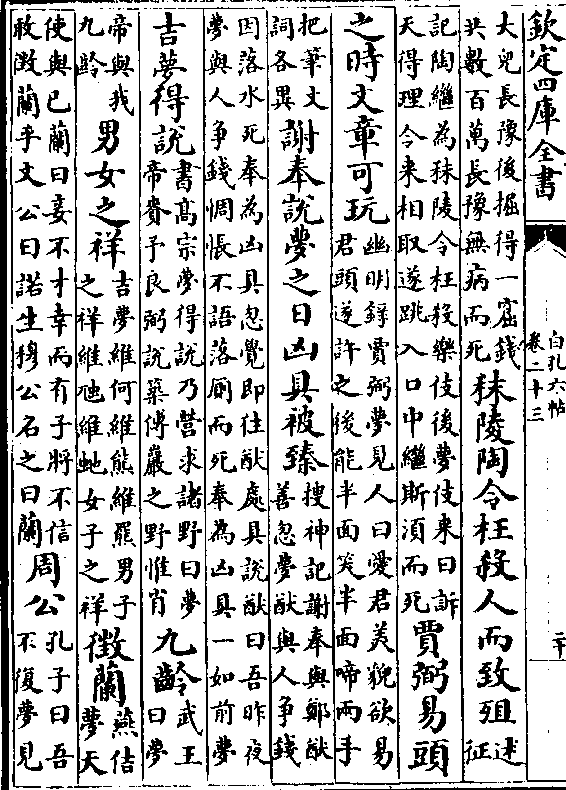 欽定四庫全書
白孔六帖
卷二十三
二十
大兒長豫後掘得一窟錢
共數百萬長豫無病而死
秣陵陶令枉殺人而致殂
述
征
記陶繼為秣陵令枉殺樂伎後夢伎来曰訴
天得理今来相取遂跳入口中繼斯湏而死
賈弼易頭
之時文章可玩
幽明録賈弼夢見人曰愛君美貌欲易
君頭遂許之後能半面笑半面啼兩手
把筆文
詞各異
謝奉說夢之日凶具被臻
搜神記謝奉與鄭猷
善忽夢猷與人争錢
因落水死奉為凶具忽覺即往猷處具說猷曰吾昨夜
夢與人争錢惆悵不語落厠而死奉為凶具一如前夢
吉夢得說
書髙宗夢得說乃營求諸野曰夢
帝賚予良弼說築傅巖之野惟肖
九齡
武王
曰夢
帝與我
九齡
男女之祥
吉夢維何維熊維羆男子
之祥維虺維虵女子之祥
徵蘭
燕佶
夢天
使與已蘭曰妾不才幸而有子將不信
敢徵蘭乎文公曰諾生穆公名之曰蘭
周公
孔子曰吾
不復夢見